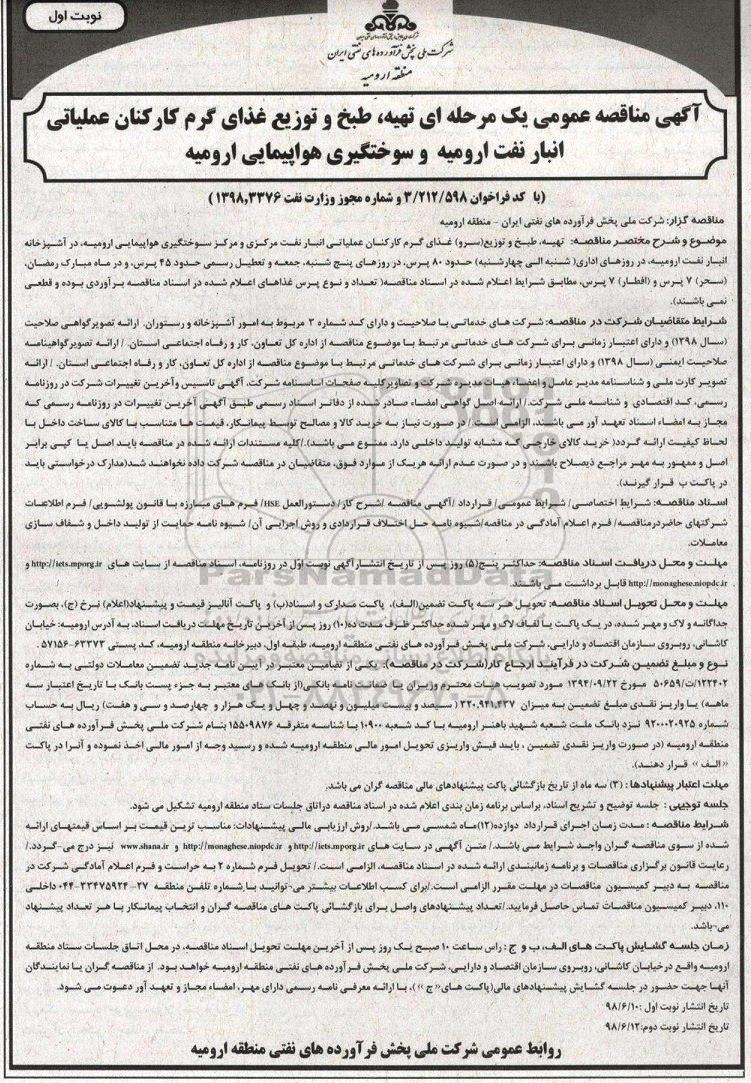 نوبت اول
شرکت ملی پخش فرآورده های نفتی ایران
منطقه ارومیه
آگهی مناقصه عمومی یک مرحله ای تهیه، طبخ و توزیع غذای گرم کارکنان عملیاتی
انبار نفت ارومیه و سوختگیری هواپیمایی ارومیه
(با کد فراخوان ۳/۲۱۲/۵۹۸ و شماره مجوز وزارت نفت ۱۳۹۸,۳۳۷۶)
مناقصه گزار: شرکت ملی پخش فرآورده های نفتی ایران - منطقه ارومیه
موضوع و شرح مختصر مناقصه: تهیه، طبخ و توزیع(سرو) غذای گرم کارکنان عملیاتی انبار نفت مرکزی و مرکز سوختگیری هواپیمایی ارومیه، در آشپزخانه
انبار نفت ارومیه، در روزهای اداری( شنبه الی چهارشنبه) حدود ۸۰ پرس، در روزهای پنج شنبه، جمعه و تعطیل رسمی حدود ۴۵ پرس، و در ماه مبارک رمضان،
(سحر) ۷ پرس و (افطار) ۷ پرس، مطابق شرایط اعلام شده در اسناد مناقصه( تعداد و نوع پرس غذاهای اعلام شده در اسناد مناقصه برآوردی بوده و قطعی
نمی باشند).
شرایط متقاضیان شرکت در مناقصه: شرکت های خدماتی با صلاحیت و دارای کد شماره ۳ مربوط به امور آشپزخانه و رستوران. ارائه تصویرگواهی صلاحیت
(سال ۱۳۹۸) و دارای اعتبار زمانی برای شرکت های خدماتی مرتبط با موضوع مناقصه از اداره کل تعاون، کار و رفاه اجتماعی استان. / ارائه تصویرگواهینامه
صلاحیت ایمنی (سال ۱۳۹۸) و دارای اعتبار زمانی برای شرکت های خدماتی مرتبط با موضوع مناقصه از اداره کل تعاون، کار و رفاه اجتماعی استان. / ارائه
تصویر کارت ملی و شناسنامه مدیر عامل و اعضاء هیات مدیره شرکت و تصاویرکلیه صفحات اساسنامه شرکت، آگهی تاسیس وآخرین تغییرات شرکت در روزنامه
رسمی، کد اقتصادی و شناسه ملی شرکت./ ارائه اصل گواهی امضاء صادر شده از دفاتر اسناد رسمی طبق آگهی آخرین تغییرات در روزنامه رسمی که
مجاز به امضاء اسناد تعهد آور می باشند، الزامی است./ در صورت نیاز به خرید کالا و مصالح توسط پیمانکار، قیمت ها متناسب با کالای ساخت داخل با
لحاظ کیفیت ارائه گردد( خرید کالای خارجی که مشابه تولید داخلی دارد، ممنوع می باشد)./کلیه مستندات ارائه شده در مناقصه باید اصل یا کپی برابر
اصل و ممهور به مهر مراجع ذیصلاح باشند و در صورت عدم ارائه هریک از موارد فوق، متقاضیان در مناقصه شرکت داده نخواهند شد(مدارک درخواستی باید
در پاکت ب قرار گیرند).
اسناد مناقصه: شرایط اختصاصی/ شرایط عمومی/ قرارداد /آگهی مناقصه /شرح کار/ دستورالعمل HSE/ فرم های مبارزه با قانون پولشویی/ فرم اطلاعات
شرکتهای حاضردرمناقصه/ فرم اعلام آمادگی در مناقصه/شیوه نامه حل اختلاف قراردادی و روش اجرایی آن/ شیوه نامه حمایت از تولید داخل و شفاف سازی
معاملات.
مهلت و محل دریافت اسناد مناقصه: حداکثر پنج(۵) روز پس از تاریخ انتشار آگهی نوبت اول در روزنامه، اسناد مناقصه از سایت های http://iets.mporg.ir و
http://monaghese.niopdc.ir قابل برداشت می باشند.
مهلت و محل تحویل اسناد مناقصه: تحویل هر سه پاکت تضمین(الف)، پاکت مدارک و اسناد(ب) و پاکت آنالیز قیمت و پیشنهاد(اعلام) نرخ (ج)، بصورت
جداگانه و لاک و مهر شده، در یک پاکت یا لفاف لاک و مهر شده حداکثر ظرف مدت ده(۱۰) روز پس از آخرین تاریخ مهلت دریافت اسناد، به آدرس ارومیه: خیابان
کاشانی، روبروی سازمان اقتصاد و دارایی، شرکت ملی پخش فرآورده های نفتی منطقه ارومیه، طبقه اول، دبیرخانه منطقه ارومیه، کد پستی ۶۳۳۷۳-۵۷۱۵۶ .
نوع و مبلغ تضمین شرکت در فرآیند ارجاع کار(شرکت در مناقصه): یکی از تضامین معتبر در آیین نامه جدید تضمین معاملات دولتی به شماره
۱۲۳۴۰۲/ت/۵۰۶۵۹ مورخ ۱۳۹۴/۰۹/۲۲ مورد تصویب هیات محترم وزیران یا ضمانت نامه بانکی(از بانک های معتبر به جزء پست بانک با تاریخ اعتبار سه
ماهه) یا واریز نقدی مبلغ تضمین به میزان ۳۲۰,۹۴۱,۴۳۷ ( سیصد و بیست میلیون و نهصد و چهل و یک هزار و چهارصد و سی و هفت) ریال به حساب
شماره ۹۲۰۰۰۲۰۹۲۵ نزد بانک ملت شعبه شهید باهنر ارومیه با کد شعبه ۱۰۹۰۰ با شناسه متفرقه ۱۵۵۰۹۸۷۶ بنام شرکت ملی پخش فرآورده های نفتی
منطقه ارومیه (در صورت واریز نقدی تضمین ، باید فیش واریزی تحویل امور مالی منطقه ارومیه شده و رسید وجه از امور مالی اخذ نموده و آنرا در پاکت
«الف » قرار دهند).
مهلت اعتبار پیشنهادها : (۳) سه ماه از تاریخ بازگشائی پاکت پیشنهادهای مالی مناقصه گران می باشد.
جلسه توجیهی : جلسه توضیح و تشریح اسناد، براساس برنامه زمان بندی اعلام شده در اسناد مناقصه دراتاق جلسات ستاد منطقه ارومیه تشکیل می شود.
شرایط مناقصه : مدت زمان اجرای قرارداد دوازده(۱۲)ماه شمسی می باشد./روش ارزیابی مالی پیشنهادات: مناسب ترین قیمت بر اساس قیمتهای ارائه
شده از سوی مناقصه گران واجد شرایط می باشد./ متن آگهی در سایت های http://iets.mporg.ir و http://monaghese.niopdc.ir و www.shana.ir نیز درج می-گردد./
رعایت قانون برگزاری مناقصات و برنامه زمانبندی ارائه شده در اسناد مناقصه، الزامی است./ تحویل فرم شماره ۲ به حراست و فرم اعلام آمادگی شرکت در
مناقصه به دبیر کمیسیون مناقصات در مهلت مقرر الزامی است./برای کسب اطلاعات بیشتر می-توانید با شماره تلفن منطقه ۲۷-۳۳۴۷۵۹۲۴-۰۴۴ داخلی
۱۱۰، دبیر کمیسیون مناقصات تماس حاصل فرمایید./تعداد پیشنهادهای واصل برای بازگشائی پاکت های مناقصه گران و انتخاب پیمانکار با هر تعداد پیشنهاد
می-باشد.
زمان جلسه گشایش پاکت های الف، ب و ج : راس ساعت ۱۰ صبح یک روز پس از آخرین مهلت تحویل اسناد مناقصه، در محل اتاق جلسات ستاد منطقه
ارومیه واقع درخیابان کاشانی، روبروی سازمان اقتصاد و دارایی، شرکت ملی پخش فرآورده های نفتی منطقه ارومیه خواهد بود. از مناقصه گران یا نمایندگان
آنها جهت حضور در جلسه گشایش پیشنهادهای مالی(پاکت های« ج »)، با ارائه معرفی نامه رسمی دارای مهر، امضاء مجاز و تعهد آور دعوت می شود.
تاریخ انتشار نوبت اول :۹۸/۶/۱۰
تاریخ انتشار نوبت دوم:۹۸/۶/۱۲
روابط عمومی شرکت ملی پخش فرآورده های نفتی منطقه ارومیه
ParsNamadData